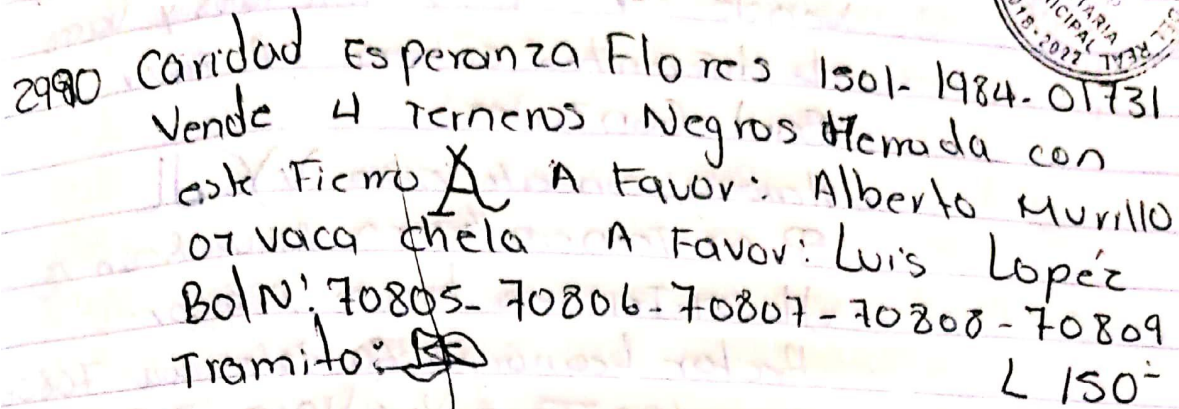 2980 Caridad Esperanza Flores 1501-1984-01731
Vende 4 Terneros Negros Herrada con
este Fierro A Favor: Alberto Murillo
01 vaca chela A Favor: Luis Lopéz
Bol N: 70805-70806-70807-70808-70809
Tramito:
L 150=
ARIA
ICIPAL
018-2022
REAL